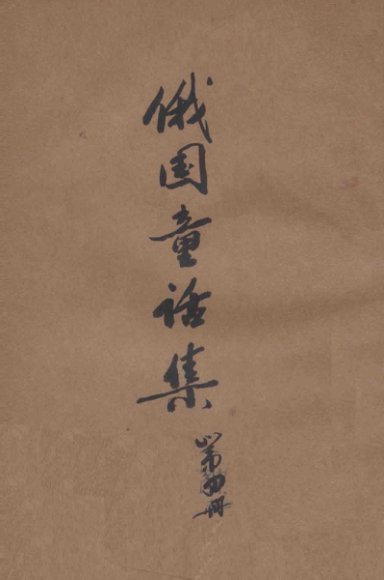 俄国童话集
第四册